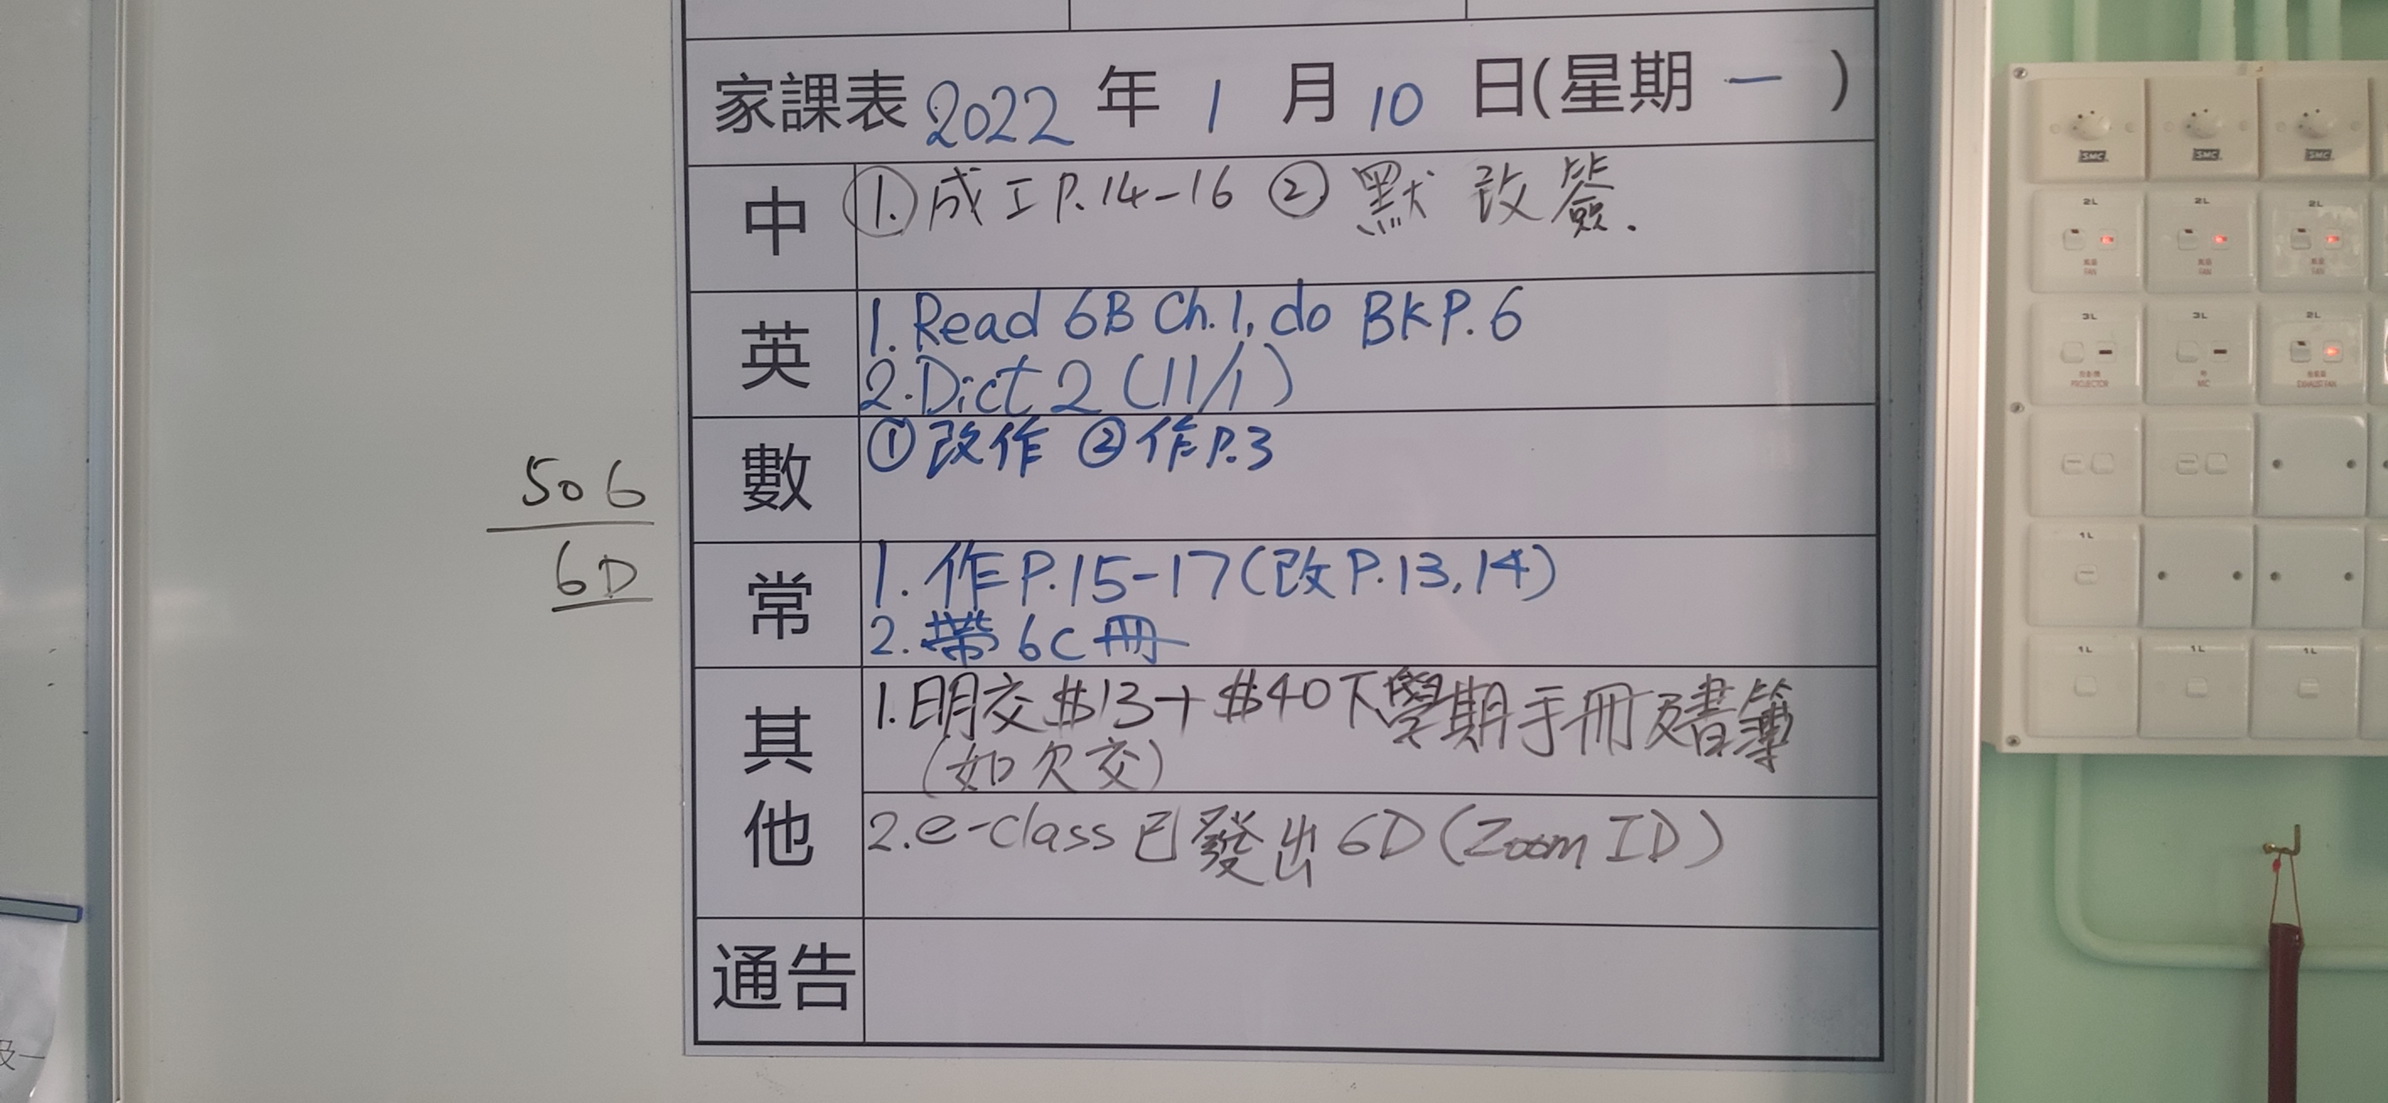 家課表 2022 年 1 月 10 日(星期 一 )
中
①成工P.14-16 ② 默 改 簽.
英
1. Read 6B Ch.1, do BKP.6
2. Dict 2 (11/1)
數
① 改作 ② 作P.3
506
6D
常
1. 作P.15-17(改P.13,14)
2. 帶6C冊
其他
1. 明交$13+$40下學期手冊及書簿
(如欠交)
2. e-class 已發出 6D (Zoom ID)
通告
SMC SMC SMC
2L 2L 2L
FAN FAN FAN
3L 3L 2L
PROJECTOR MIC EXHAUST FAN
1L
1L 1L 1L